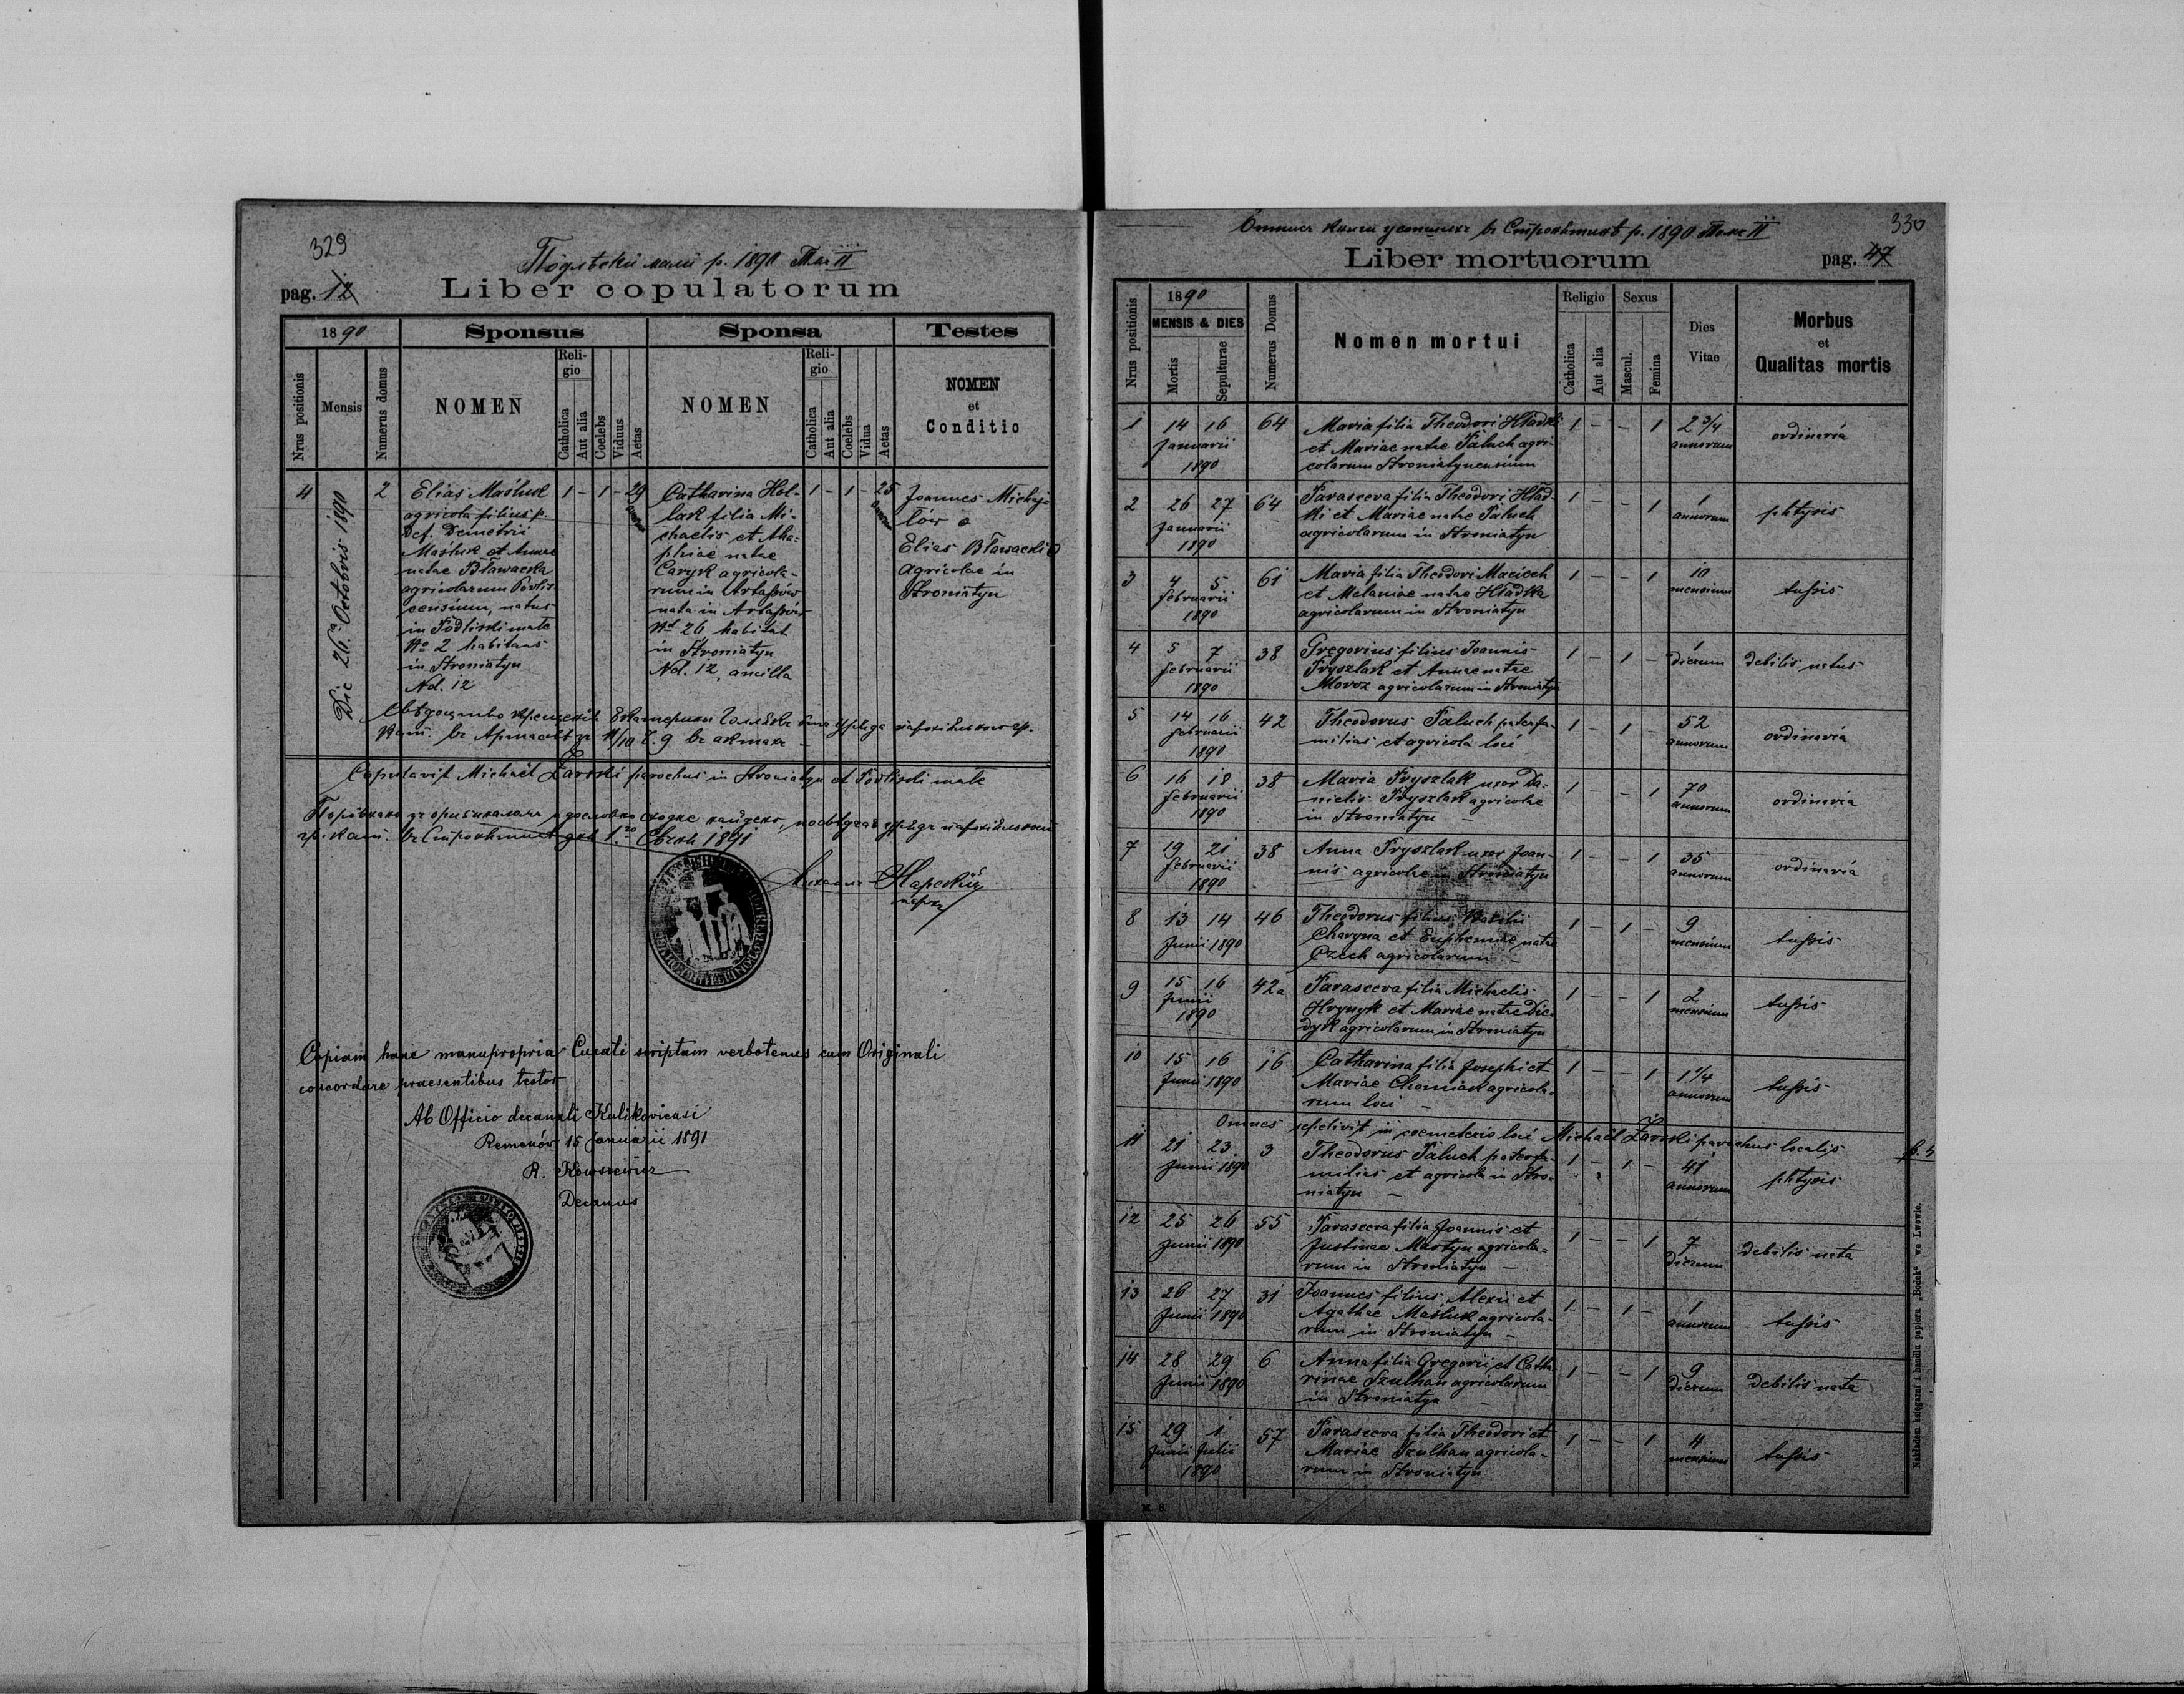 329
Подлѣски малі р. 1890 Том II
pag. 12
Liber copulatorum
1890
Sponsus
Sponsa
Testes
Nrus positionis
Mensis
Numerus domus
NOMEN
Religio
Catholica
Aut alia
Coelebs
Viduus
Aetas
NOMEN
Religio
Catholica
Aut alia
Coelebs
Vidua
Aetas
NOMEN
et
Conditio
4
Die 26a Octobris 1890
2
Elias Maśluk
agricola filius p.
Def. Demetrii
Maśluk et Annae
natae Bławacka
agricolarum Podlis-
censium, natus
in Podliski małe
No 2 habitans
in Stroniatyn
Nd. 12
1 - 1 - 29
Catharina Hol-
lak filia Mi-
chaelis et Aha-
phiae natae
Caryk agricola-
rum in Artasów
nata in Artasów
Nd 26 habitat
in Stroniatyn
Nd. 12, ancilla
1 - 1 - 25
Joannes Michaj-
lów
Elias Bławacki
agricolae in
Stroniatyn
Copulavit Michaël Żarski parochus in Stroniatyn et Podliski małe
Copiam hanc manupropria Curati scriptam verbotenus cum Originali
concordare praesentibus testor
Ab Officio decanali Kulikoviensi
Remenów 15 Januarii 1891
Decanus
330
р. 1890 Том II
Liber mortuorum
pag. 47
Nrus positionis
1890
MENSIS & DIES
Mortis
Sepulturae
Numerus Domus
Nomen mortui
Religio
Catholica
Aut alia
Sexus
Mascul.
Femina
Dies
Vitae
Morbus
et
Qualitas mortis
1 14 16 64 Maria filia Theodori Hładki 1 - - 1 2 3/4 ordinaria
Januarii et Mariae natae Paluch agri- annorum
1890 colarum Stroniatynensium
2 26 27 64 Parasceva filia Theodori Hład- 1 - - 1 1 phtysis
Januarii ki et Mariae natae Paluch annorum
1890 agricolarum in Stroniatyn
3 4 5 61 Maria filia Theodori Maciech 1 - - 1 10 tussis
Februarii et Melaniae natae Hładka mensium
1890 agricolarum in Stroniatyn
4 5 7 38 Gregorius filius Joannis 1 - 1 - 1 debilis natus
Februarii Pryszlak et Annae natae dierum
1890 Moroz agricolarum in Stroniatyn
5 14 16 42 Theodorus Paluch paterfa- 1 - 1 - 52 ordinaria
Februarii milias et agricola loci annorum
1890
6 16 18 38 Maria Pryszlak uxor Da- 1 - - 1 70 ordinaria
Februarii nielis Pryszlak agricolae annorum
1890 in Stroniatyn
7 19 21 38 Anna Pryszlak uxor Joan- 1 - - 1 35 ordinaria
Februarii nis agricolae in Stroniatyn annorum
1890
8 13 14 46 Theodorus filius Basilii 1 - 1 - 9 tussis
Junii 1890 Charyna et Euphemiae natae mensium
Czech agricolarum
9 15 16 42a Parasceva filia Michaelis 1 - - 1 2 tussis
Junii Hrynyk et Mariae natae Die- mensium
1890 dyk agricolarum in Stroniatyn
10 15 16 16 Catharina filia Josephi et 1 - - 1 1 1/4 tussis
Junii 1890 Mariae Chomiak agricola- annorum
rum loci
Omnes sepelivit in coemeterio loci Michaël Żarski parochus localis
11 21 23 3 Theodorus Paluch paterfa- 1 - 1 - 41 phtysis
Junii 1890 milias et agricola in Stro- annorum
niatyn
12 25 26 55 Parasceva filia Joannis et 1 - - 1 7 debilis nata
Junii 1890 Justinae Martyn agricola- dierum
rum in Stroniatyn
13 26 27 31 Joannes filius Alexii et 1 - 1 - 1 tussis
Junii 1890 Agathae Maśluk agricola- annorum
rum in Stroniatyn
14 28 29 6 Anna filia Gregorii et Catha- 1 - - 1 9 debilis nata
Junii 1890 rinae Szulhan agricolarum dierum
in Stroniatyn
15 29 1 57 Parasceva filia Theodori et 1 - - 1 4 tussis
Junii Julii Mariae Szulhan agricola- mensium
1890 rum in Stroniatyn
Nakładem księgarni i handlu papieru „Bodek" we Lwowie.